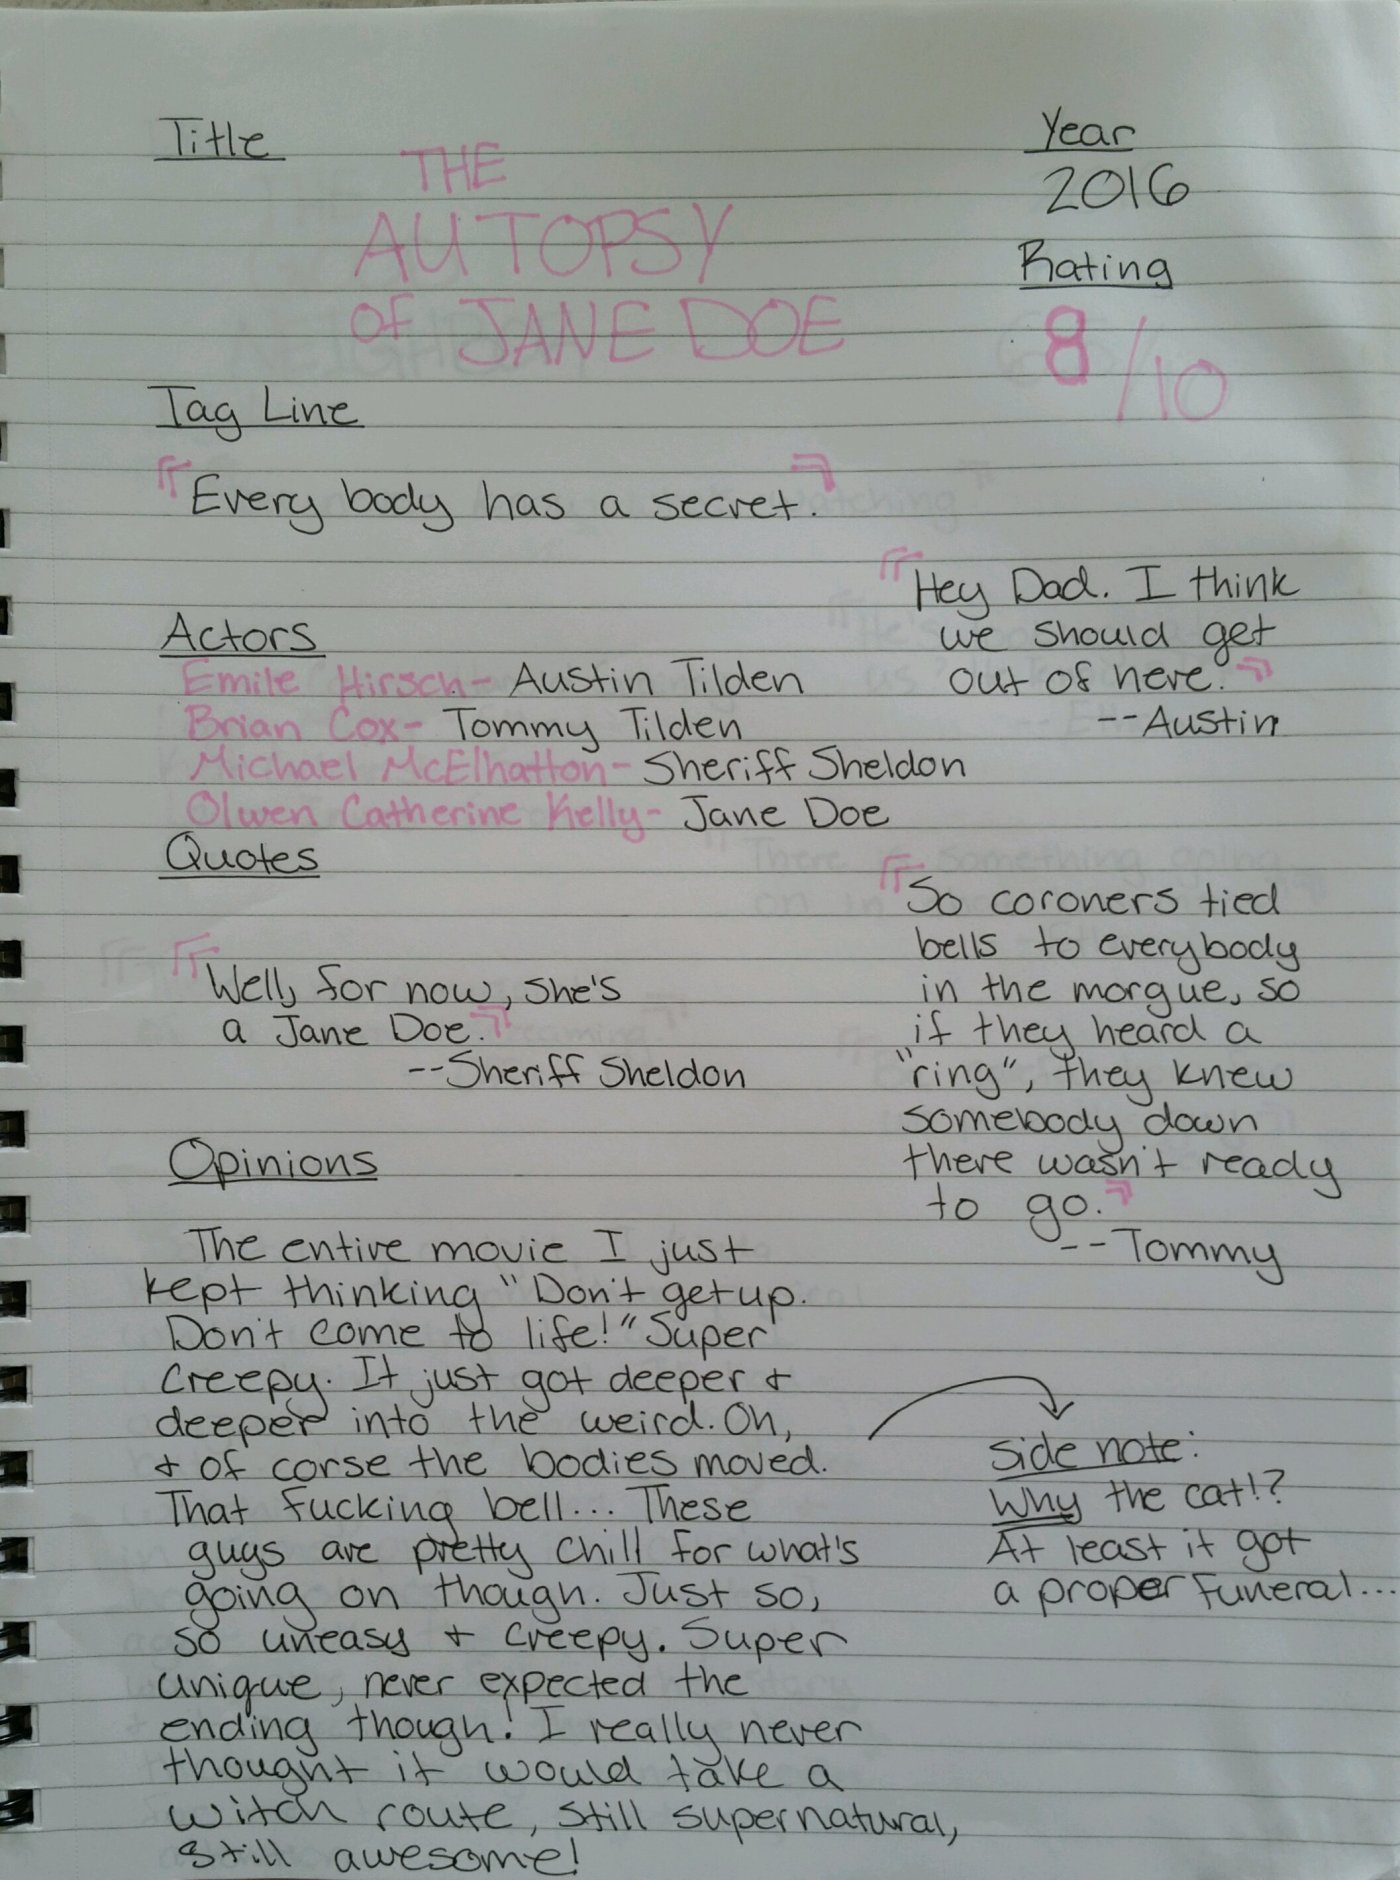 Title
THE
AUTOPSY
of JANE DOE
Year
2016
Rating
8/10
Tag Line
"Every body has a secret."
Actors
Emile Hirsch- Austin Tilden
Brian Cox- Tommy Tilden
Michael McElhatton- Sheriff Sheldon
Olwen Catherine Kelly- Jane Doe
"Hey Dad. I think
we should get
out of here."
--Austin
Quotes
"Well, for now, she's
a Jane Doe."
--Sheriff Sheldon
"So coroners tied
bells to everybody
in the morgue, so
if they heard a
"ring", they knew
somebody down
there wasn't ready
to go."
--Tommy
Opinions
The entire movie I just
kept thinking "Don't get up.
Don't come to life!" Super
creepy. It just got deeper &
deeper into the weird. Oh,
& of corse the bodies moved.
That fucking bell... These
guys are pretty chill for what's
going on though. Just so,
so uneasy & creepy. Super
unique, never expected the
ending though! I really never
thought it would take a
witch route, still supernatural,
still awesome!
Side note:
Why the cat!?
At least it got
a proper funeral...